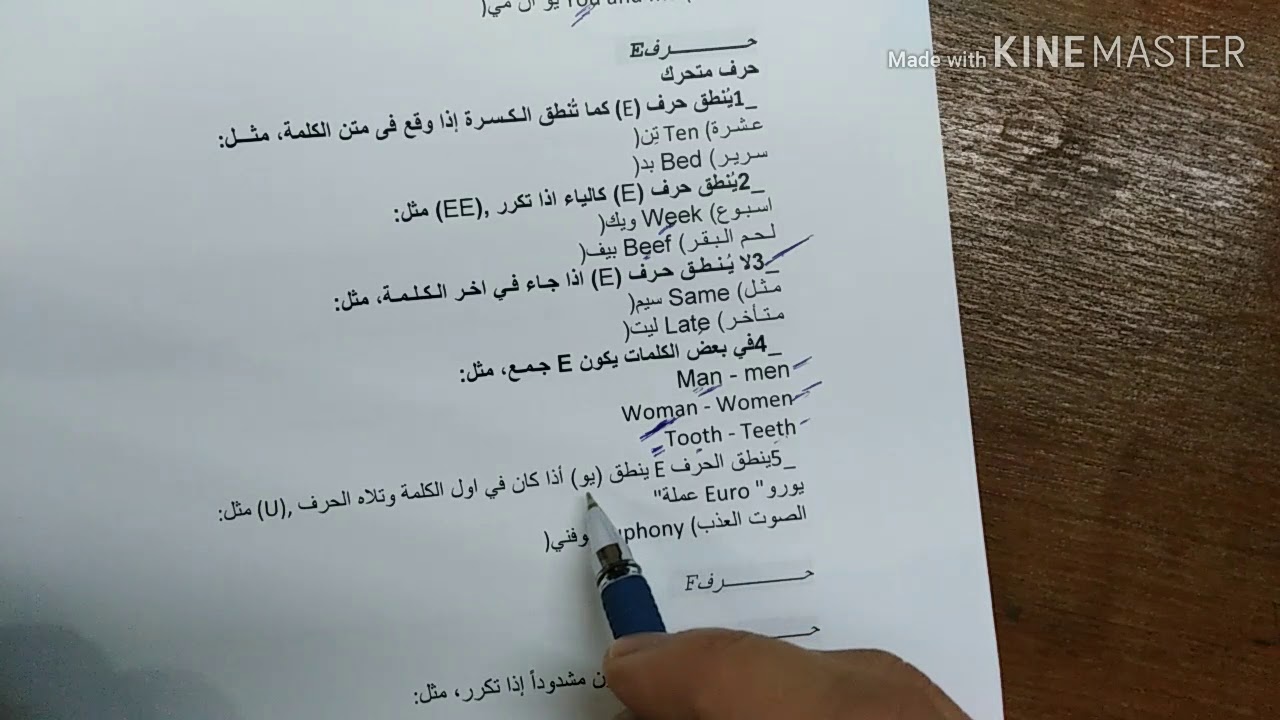 You and يو ان مي(
Made with KINEMASTER
حـــــــرفE
حرف متحرك
_1يُنطق حرف (E) كما تُنطق الكسرة إذا وقع فى متن الكلمة، مثــل:
عشرة) Ten تِن(
سرير) Bed بد(
_2يُنطق حرف (E) كالياء اذا تكرر ,(EE) مثل:
اسبوع) Week ويك(
لحم البقر) Beef بيف(
_3لا يُنطق حرف (E) اذا جاء في اخر الكلمة، مثل:
مثل) Same سيم(
متأخر) Late ليت(
_4في بعض الكلمات يكون E جمع، مثل:
Man - men
Woman - Women
Tooth - Teeth
_5ينطق الحرف E ينطق (يو) أذا كان في اول الكلمة وتلاه الحرف ,(U) مثل:
يورو" Euro عملة"
الصوت العذب) uphony وفني(
حـــــــرفF
حـ
ن مشدوداً إذا تكرر، مثل: